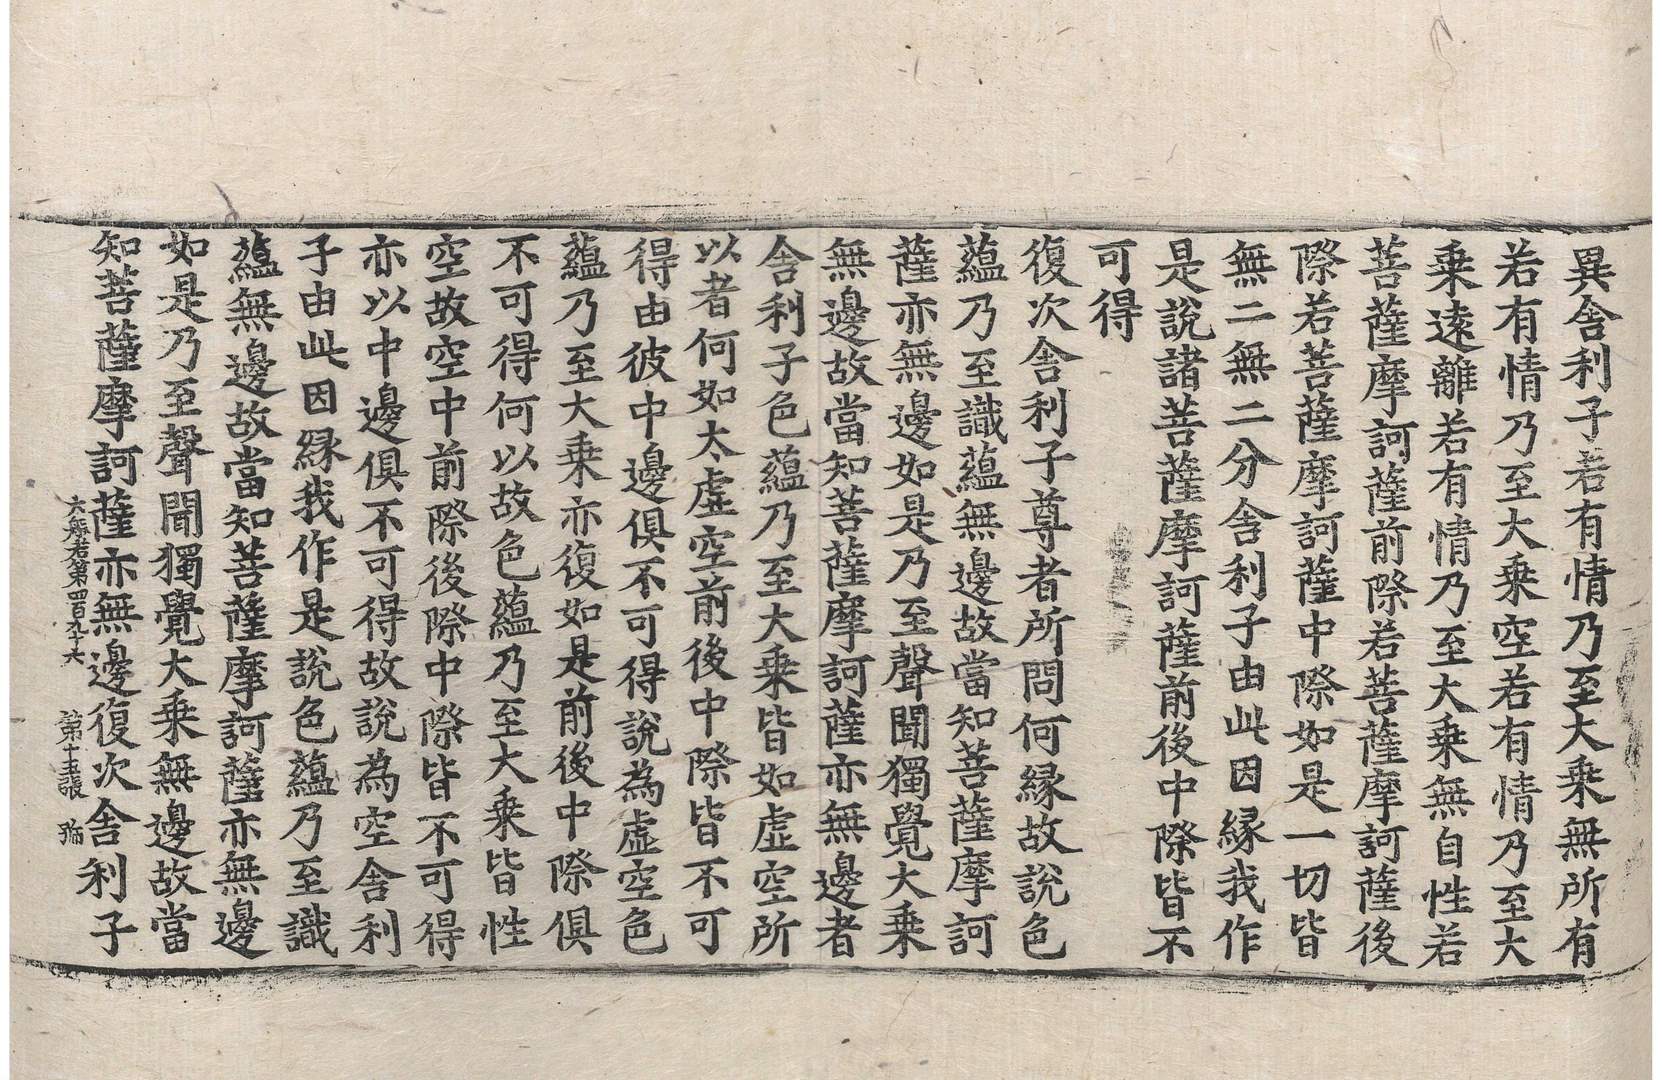 異舍利子若有情乃至大乘無所有
若有情乃至大乘空若有情乃至大
乘遠離若有情乃至大乘無自性若
菩薩摩訶薩前際若菩薩摩訶薩後
際若菩薩摩訶薩中際如是一切皆
無二無二分舍利子由此因緣我作
是說諸菩薩摩訶薩前後中際皆不
可得
復次舍利子尊者所問何緣故說色
蘊乃至識蘊無邊故當知菩薩摩訶
薩亦無邊如是乃至聲聞獨覺大乘
無邊故當知菩薩摩訶薩亦無邊者
舍利子色蘊乃至大乘皆如虛空所
以者何如太虛空前後中際皆不可
得由彼中邊俱不可得說為虛空色
蘊乃至大乘亦復如是前後中際俱
不可得何以故色蘊乃至大乘皆性
空故空中前際後際中際皆不可得
亦以中邊俱不可得故說為空舍利
子由此因緣我作是說色蘊乃至識
蘊無邊故當知菩薩摩訶薩亦無邊
如是乃至聲聞獨覺大乘無邊故當
知菩薩摩訶薩亦無邊復次舍利子
大般若第四百九十六 第十五張 㳽